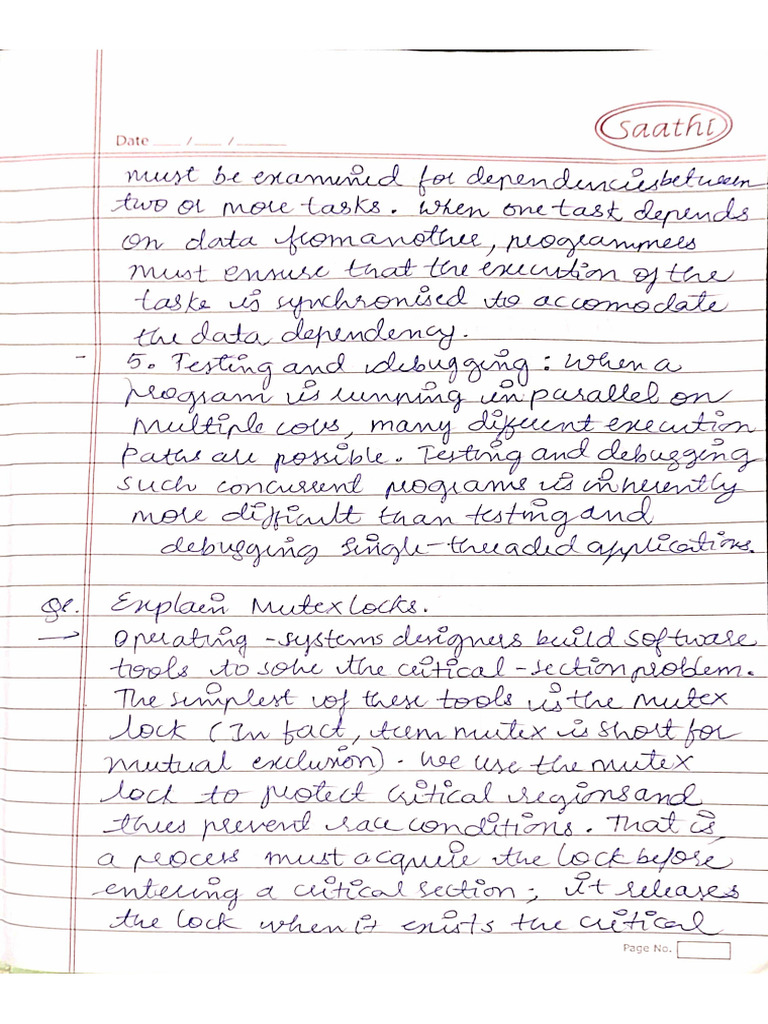 saathi
Date ___ / ___ / ______
must be examined for dependencies between
two or more tasks. When one task depends
on data from another, programmers
must ensure that the execution of the
tasks is synchronised to accomodate
the data dependency.
- 5. Testing and debugging : When a
program is running in parallel on
multiple cores, many different execution
paths are possible. Testing and debugging
such concurrent programs is inherently
more difficult than testing and
debugging single-threaded applications.
Explain Mutex locks.
→ Operating-systems designers build software
tools to solve the critical-section problem.
The simplest of these tools is the mutex
lock (In fact, term mutex is short for
mutual exclusion). We use the mutex
lock to protect critical regions and
thus prevent race conditions. That is,
a process must acquire the lock before
entering a critical section; it releases
the lock when it exists the critical
Page No.